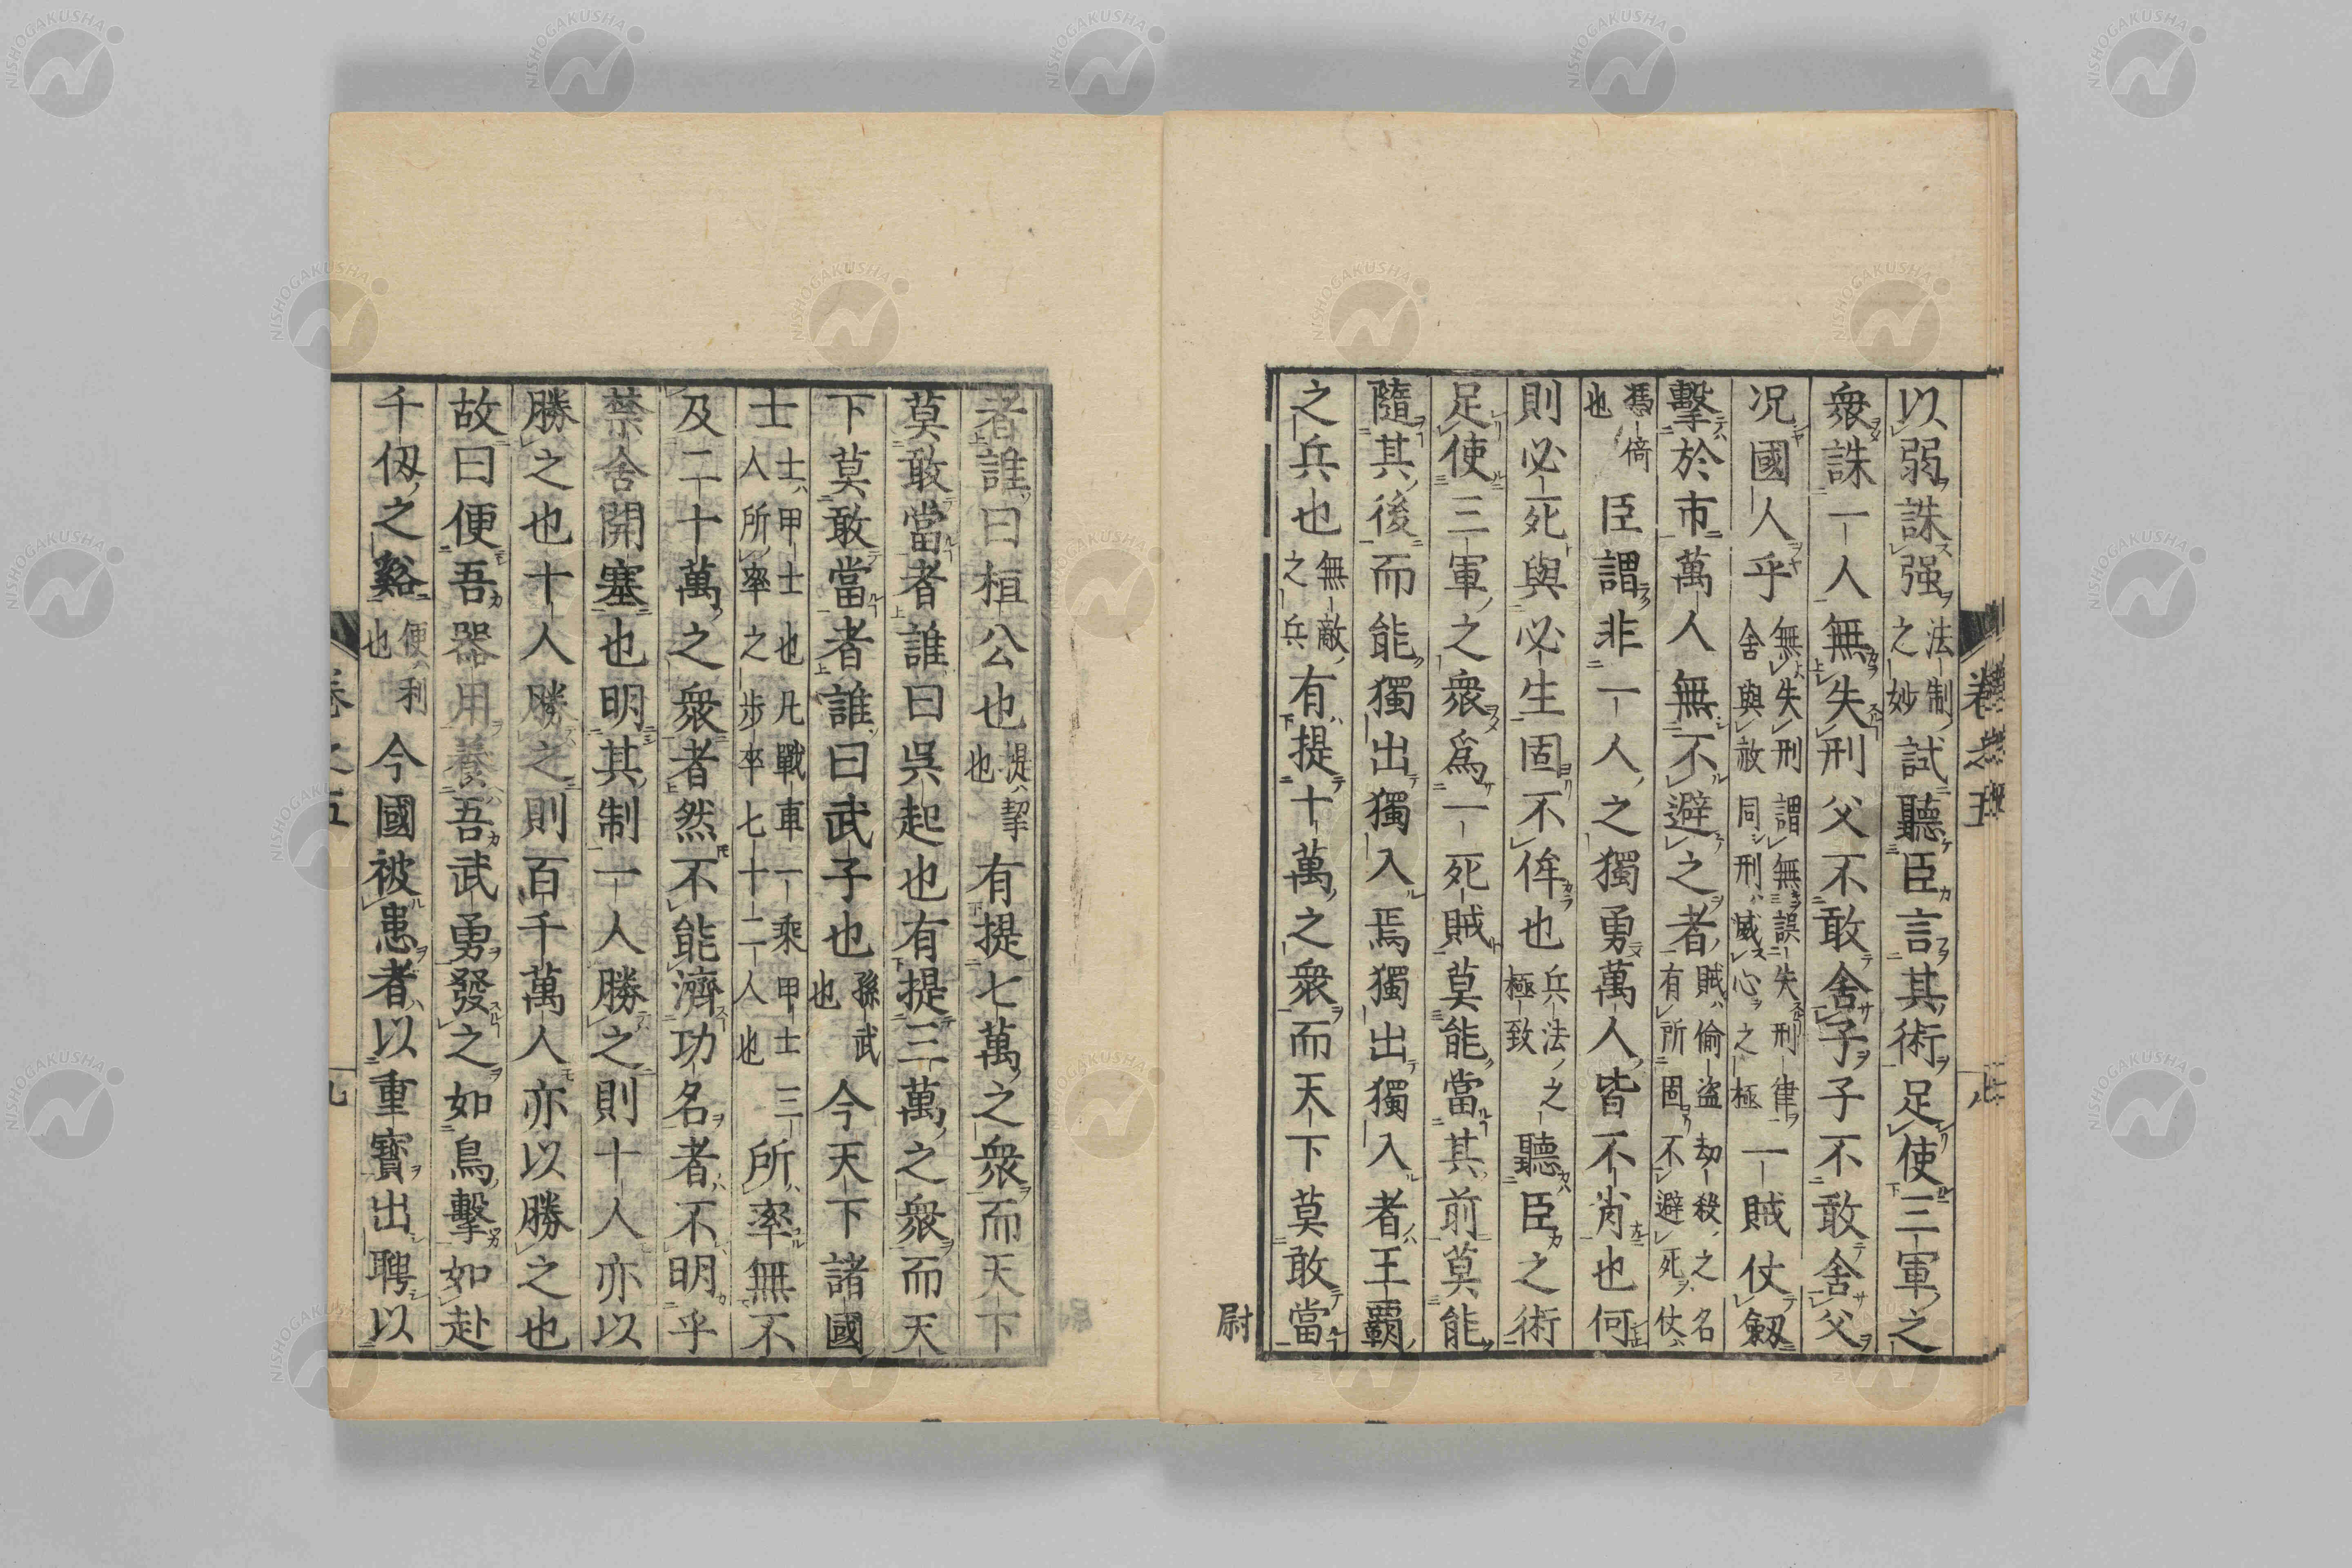 卷之五
八
以弱誅强法制之妙試聽臣言其術足使三軍之
衆誅一人無失刑父不敢舍子子不敢舍父
况國人乎無失刑謂無誤失刑律舍與赦同刑威心之極一賊仗劔
擊於市萬人無不避之者賊偷盜劫殺之名有所固不避死仗
憑倚也臣謂非一人之獨勇萬人皆不肖也何
則必死與必生固不侔也兵法之極致聽臣之術
足使三軍之衆爲一死賊莫能當其前莫能
隨其後而能獨出獨入焉獨出獨入者王覇
之兵也無敵之兵有提十萬之衆而天下莫敢當
尉
者誰曰桓公也提挈也有提七萬之衆而天下
莫敢當者誰曰吳起也有提三萬之衆而天
下莫敢當者誰曰武子也孫武也今天下諸國
士士甲士也凡戰車一乘甲士三人所率之步卒七十二人也所率無不
及二十萬之衆者然不能濟功名者不明乎
禁舍開塞也明其制一人勝之則十人亦以
勝之也十人勝之則百千萬人亦以勝之也
故曰便吾器用養吾武勇發之如鳥擊如赴
千仭之谿便利也今國被患者以重寳出聘以
卷之五
九
NISHOGAKUSHA